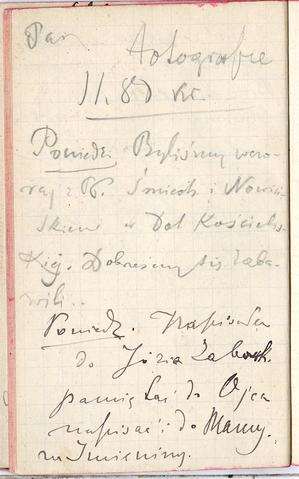 Pan
Fotografie
11.80 kr.
Poniedz. Byliśmy wczo-
raj z P. Śmiech i Nowic-
kiem w Dol Kościelis-
kiej. Dobreśmy się zaba-
wili..
Poniedz. Napisałem
do Józia Zabork.
pamiętać do Ojca
napisać i do Mamy.
na Imieniny.